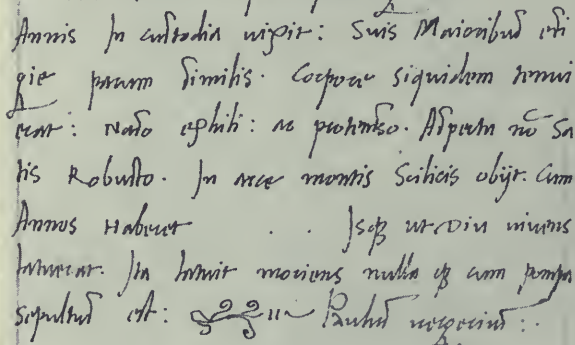 Annis In custodia uixit: Suis Maioribus effi
gie parum similis. Corpore siquidem tenui
erat: Naso exhili: ac protenso. Aspectu nō Sa
tis Robusto. In arce montis Scilicis obijt. Cum
Annos Haberet . . Isqȝ ut Diu uiuens
latuerat. Ita latuit moriens nulla qȝ cum pompa
sepultus est: Paulus uergerius:.